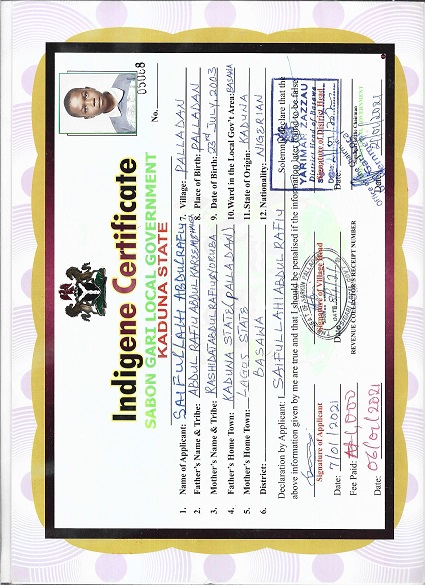 No. 05068
Indigene Certificate
SABON GARI LOCAL GOVERNMENT
KADUNA STATE
1. Name of Applicant: SAIFULLAHI ABDULRAFIU
2. Father's Name & Tribe: ABDUL RAFIU ABDUL KAREEM
3. Mother's Name & Tribe: RASHIDAT ABDULRAFIU/YORUBA
4. Father's Home Town: KADUNA STATE (PALLADAN)
5. Mother's Home Town: LAGOS STATE
6. District: BASAWA
7. Village: PALLADAN
8. Place of Birth: PALLADAN
9. Date of Birth: 23RD JULY, 2003
10. Ward in the Local Gov't Area: BASAWA
11. State of Origin: KADUNA
12. Nationality: NIGERIAN
Declaration by Applicant: I SAIFULLAHI ABDULRAFIU Solemnly declare that the
above information given by me are true and that I should be penalised if the information later found to be false
Signature of Applicant
Date: 7/01/2021
Signature of Village Head
Date:
YARIMAN ZAZZAU
District Head of Basawa
Signature of District Head
Date:
Fee Paid: ₦1,000
REVENUE COLLECTOR'S RECEIPT NUMBER
Date: 06/01/2021